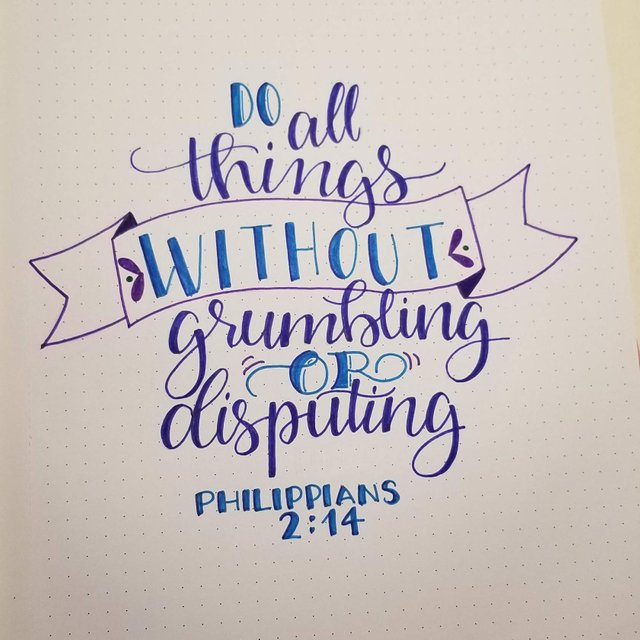 DO all
things
WITHOUT
grumbling
OR
disputing
PHILIPPIANS
2:14